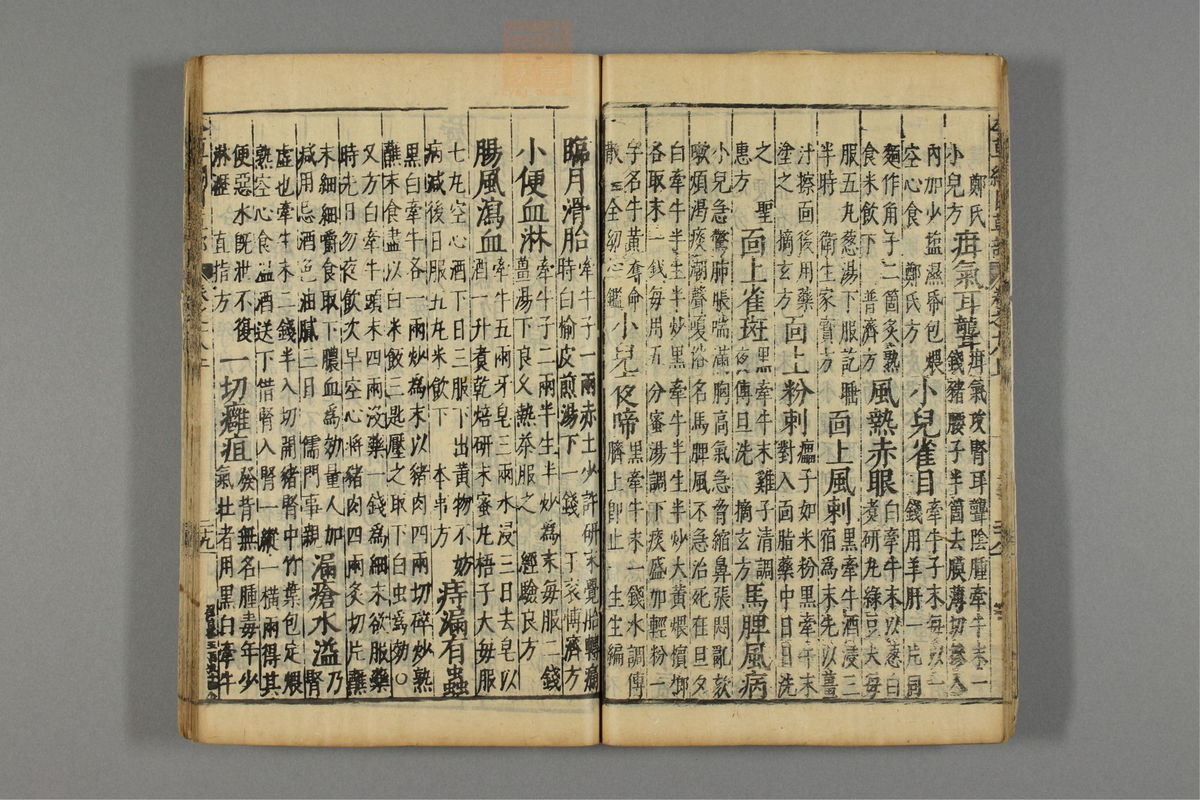 鄭氏 疳氣耳聾 疳氣攻腎耳聾陰腫牽牛末一
小兒方 錢豬腰子半箇去膜薄切摻入
內加少塩濕帋包煨 小兒雀目 牽牛子末每以一
空心食 鄭氏方 錢用羊肝一片同
麵作角子二箇炙熟 風熱赤眼 白牽牛末以葱白
食米飲下 普濟方 煑研丸綠豆大每
服五丸葱湯下服訖睡 面上風刺 黑牽牛酒浸三
半時 衛生家寶方 宿為末先以薑
汁擦面後以藥 面上粉刺 子如米粉黑牽牛末
塗之 摘玄方 對入面脂藥中日日洗
之 聖惠方 面上雀斑 黑牽牛末雞子清調夜傅旦洗 摘玄方 馬脾風病
小兒急驚肺脹喘滿胸高氣急脇縮鼻張悶亂欬
嗽煩渴痰潮聲嗄俗名馬脾風不急治死在旦夕
白牽牛半生半炒黑牽牛半生半炒大黄煨檳榔
各取末一錢每用五分蜜湯調下痰盛加輕粉一
字名牛黄奪命 小兒夜啼 黑牽牛末一錢水調傅
散 全幼心鑑 臍上即止 生生編
臨月滑胎 牽牛子一兩赤土少許研末覺胎轉痛
時白榆皮煎湯下一錢 王衮博濟方
小便血淋 牽牛子二兩半生半炒為末每服二錢
薑湯下良久熱茶服之 經驗良方
腸風瀉血 牽牛五兩牙皂三兩水浸三日去皂以
酒一升煑乾焙研末蜜丸梧子大每服
七丸空心酒下日三服下出黄物不妨 痔漏有蟲
病減後日服五丸米飲下 本事方
黑白牽牛各一兩炒為末以豬肉四兩切碎炒熟
蘸末食盡以白米飯三匙壓之取下白虫為効○
又方白牽牛頭末四兩沒藥一錢為細末欲服藥
時先日勿夜飲次早空心将豬肉四兩炙切片蘸
末細細嚼食取下膿血為効量人加 漏瘡水溢 乃
減用忌酒色油膩三日 儒門事親 腎
虛也牽牛末二錢半入切開豬腎中竹葉包定煨
熟空心食溫酒送下借腎入腎一縱一橫兩得其
便惡水既泄不復 一切癰疽 發背無名腫毒年少
淋瀝 直指方 氣壮者用黑白牽牛